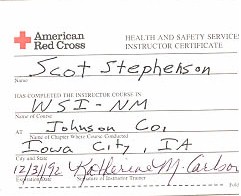 American
Red Cross
HEALTH AND SAFETY SERVICES
INSTRUCTOR CERTIFICATE
Scot Stephenson
Name
HAS COMPLETED THE INSTRUCTOR COURSE IN
WSI-NM
Name of Course
AT Johnson Co.
Name of Chapter Where Course Conducted
Iowa City, IA
City and State
12/31/92 Katherine M. Carlson
Expiration Date Signature of Instructor Trainer